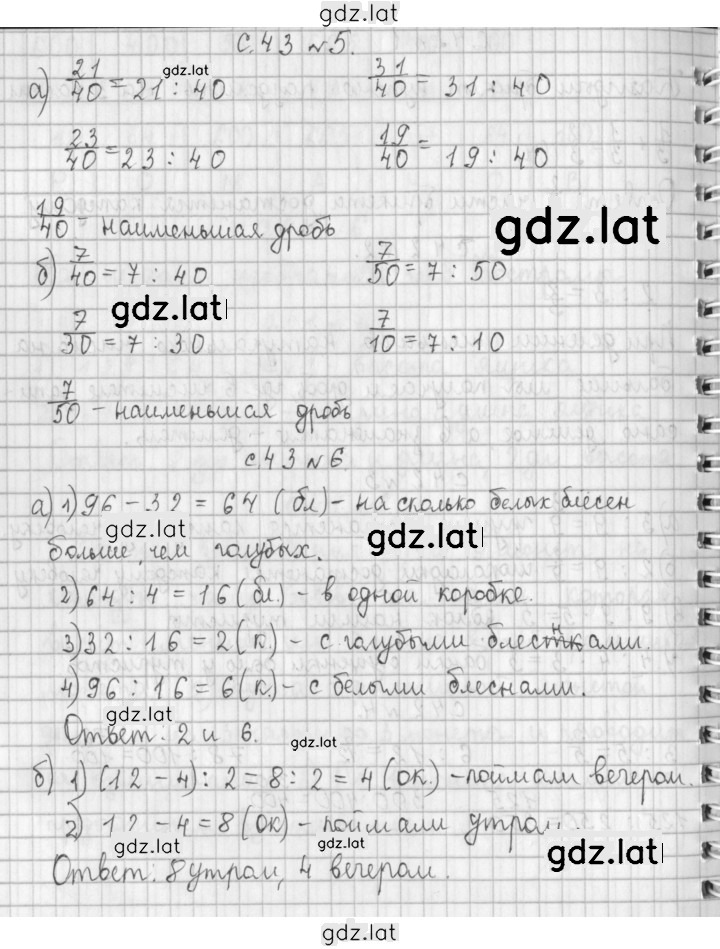 gdz.lat
с.43 №5.
gdz.lat
а) 21/40 = 21 : 40 31/40 = 31 : 40
23/40 = 23 : 40 19/40 = 19 : 40
19/40 - наименьшая дробь
gdz.lat
б) 7/40 = 7 : 40 7/50 = 7 : 50
gdz.lat
7/30 = 7 : 30 7/10 = 7 : 10
7/50 - наименьшая дробь
с.43 №6
а) 1) 96 - 32 = 64 (бл) - на сколько белых блёсен
gdz.lat gdz.lat
больше, чем голубых.
2) 64 : 4 = 16 (бл.) - в одной коробке.
gdz.lat
3) 32 : 16 = 2 (к.) - с голубыми блеснами.
4) 96 : 16 = 6 (к.) - с белыми блеснами.
gdz.lat
Ответ: 2 и 6.
gdz.lat
б) 1) (12 - 4) : 2 = 8 : 2 = 4 (ок.) - поймали вечером.
2) 12 - 4 = 8 (ок) - поймали утром.
gdz.lat gdz.lat gdz.lat
Ответ: 8 утром, 4 вечером.
gdz.lat